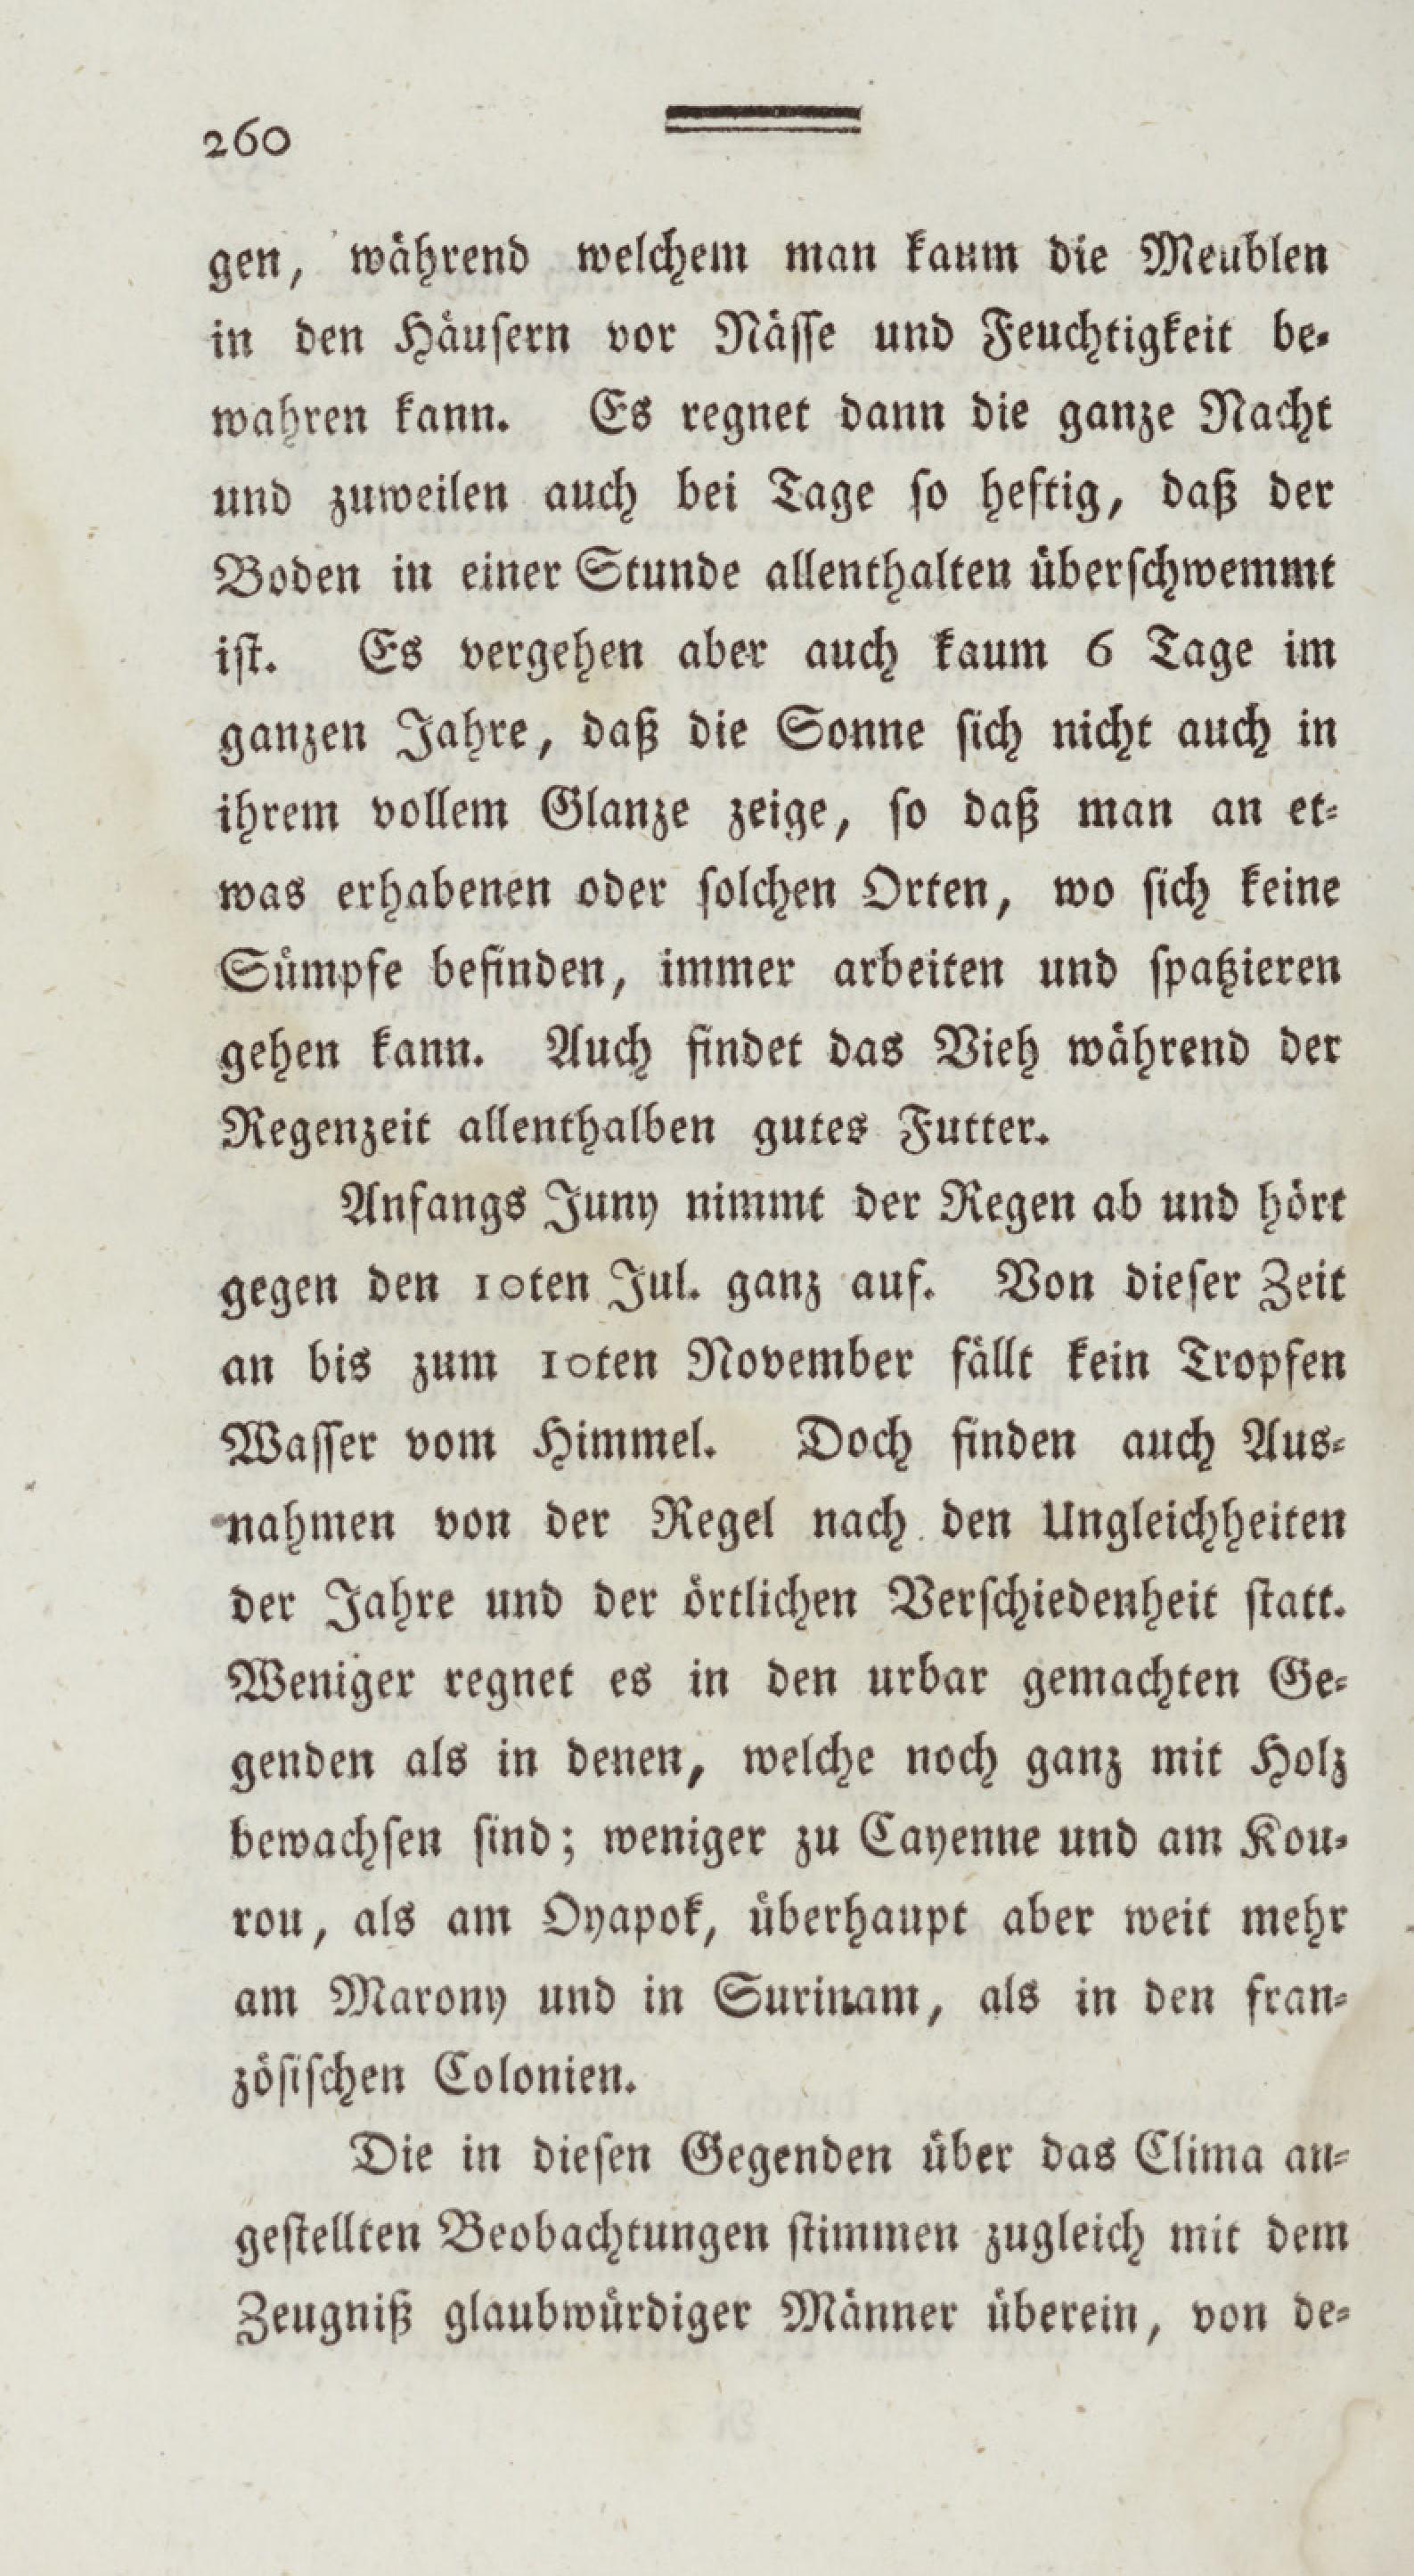 260
gen, während welchem man kaum die Meublen
in den Häusern vor Nässe und Feuchtigkeit be-
wahren kann. Es regnet dann die ganze Nacht
und zuweilen auch bei Tage so heftig, daß der
Boden in einer Stunde allenthalten überschwemmt
ist. Es vergehen aber auch kaum 6 Tage im
ganzen Jahre, daß die Sonne sich nicht auch in
ihrem vollem Glanze zeige, so daß man an et-
was erhabenen oder solchen Orten, wo sich keine
Sümpfe befinden, immer arbeiten und spatzieren
gehen kann. Auch findet das Vieh während der
Regenzeit allenthalben gutes Futter.
Anfangs Juny nimmt der Regen ab und hört
gegen den 10ten Jul. ganz auf. Von dieser Zeit
an bis zum 10ten November fällt kein Tropfen
Wasser vom Himmel. Doch finden auch Aus-
nahmen von der Regel nach den Ungleichheiten
der Jahre und der örtlichen Verschiedenheit statt.
Weniger regnet es in den urbar gemachten Ge-
genden als in denen, welche noch ganz mit Holz
bewachsen sind; weniger zu Cayenne und am Kou-
rou, als am Oyapok, überhaupt aber weit mehr
am Marony und in Surinam, als in den fran-
zösischen Colonien.
Die in diesen Gegenden über das Clima an-
gestellten Beobachtungen stimmen zugleich mit dem
Zeugniß glaubwürdiger Männer überein, von de-